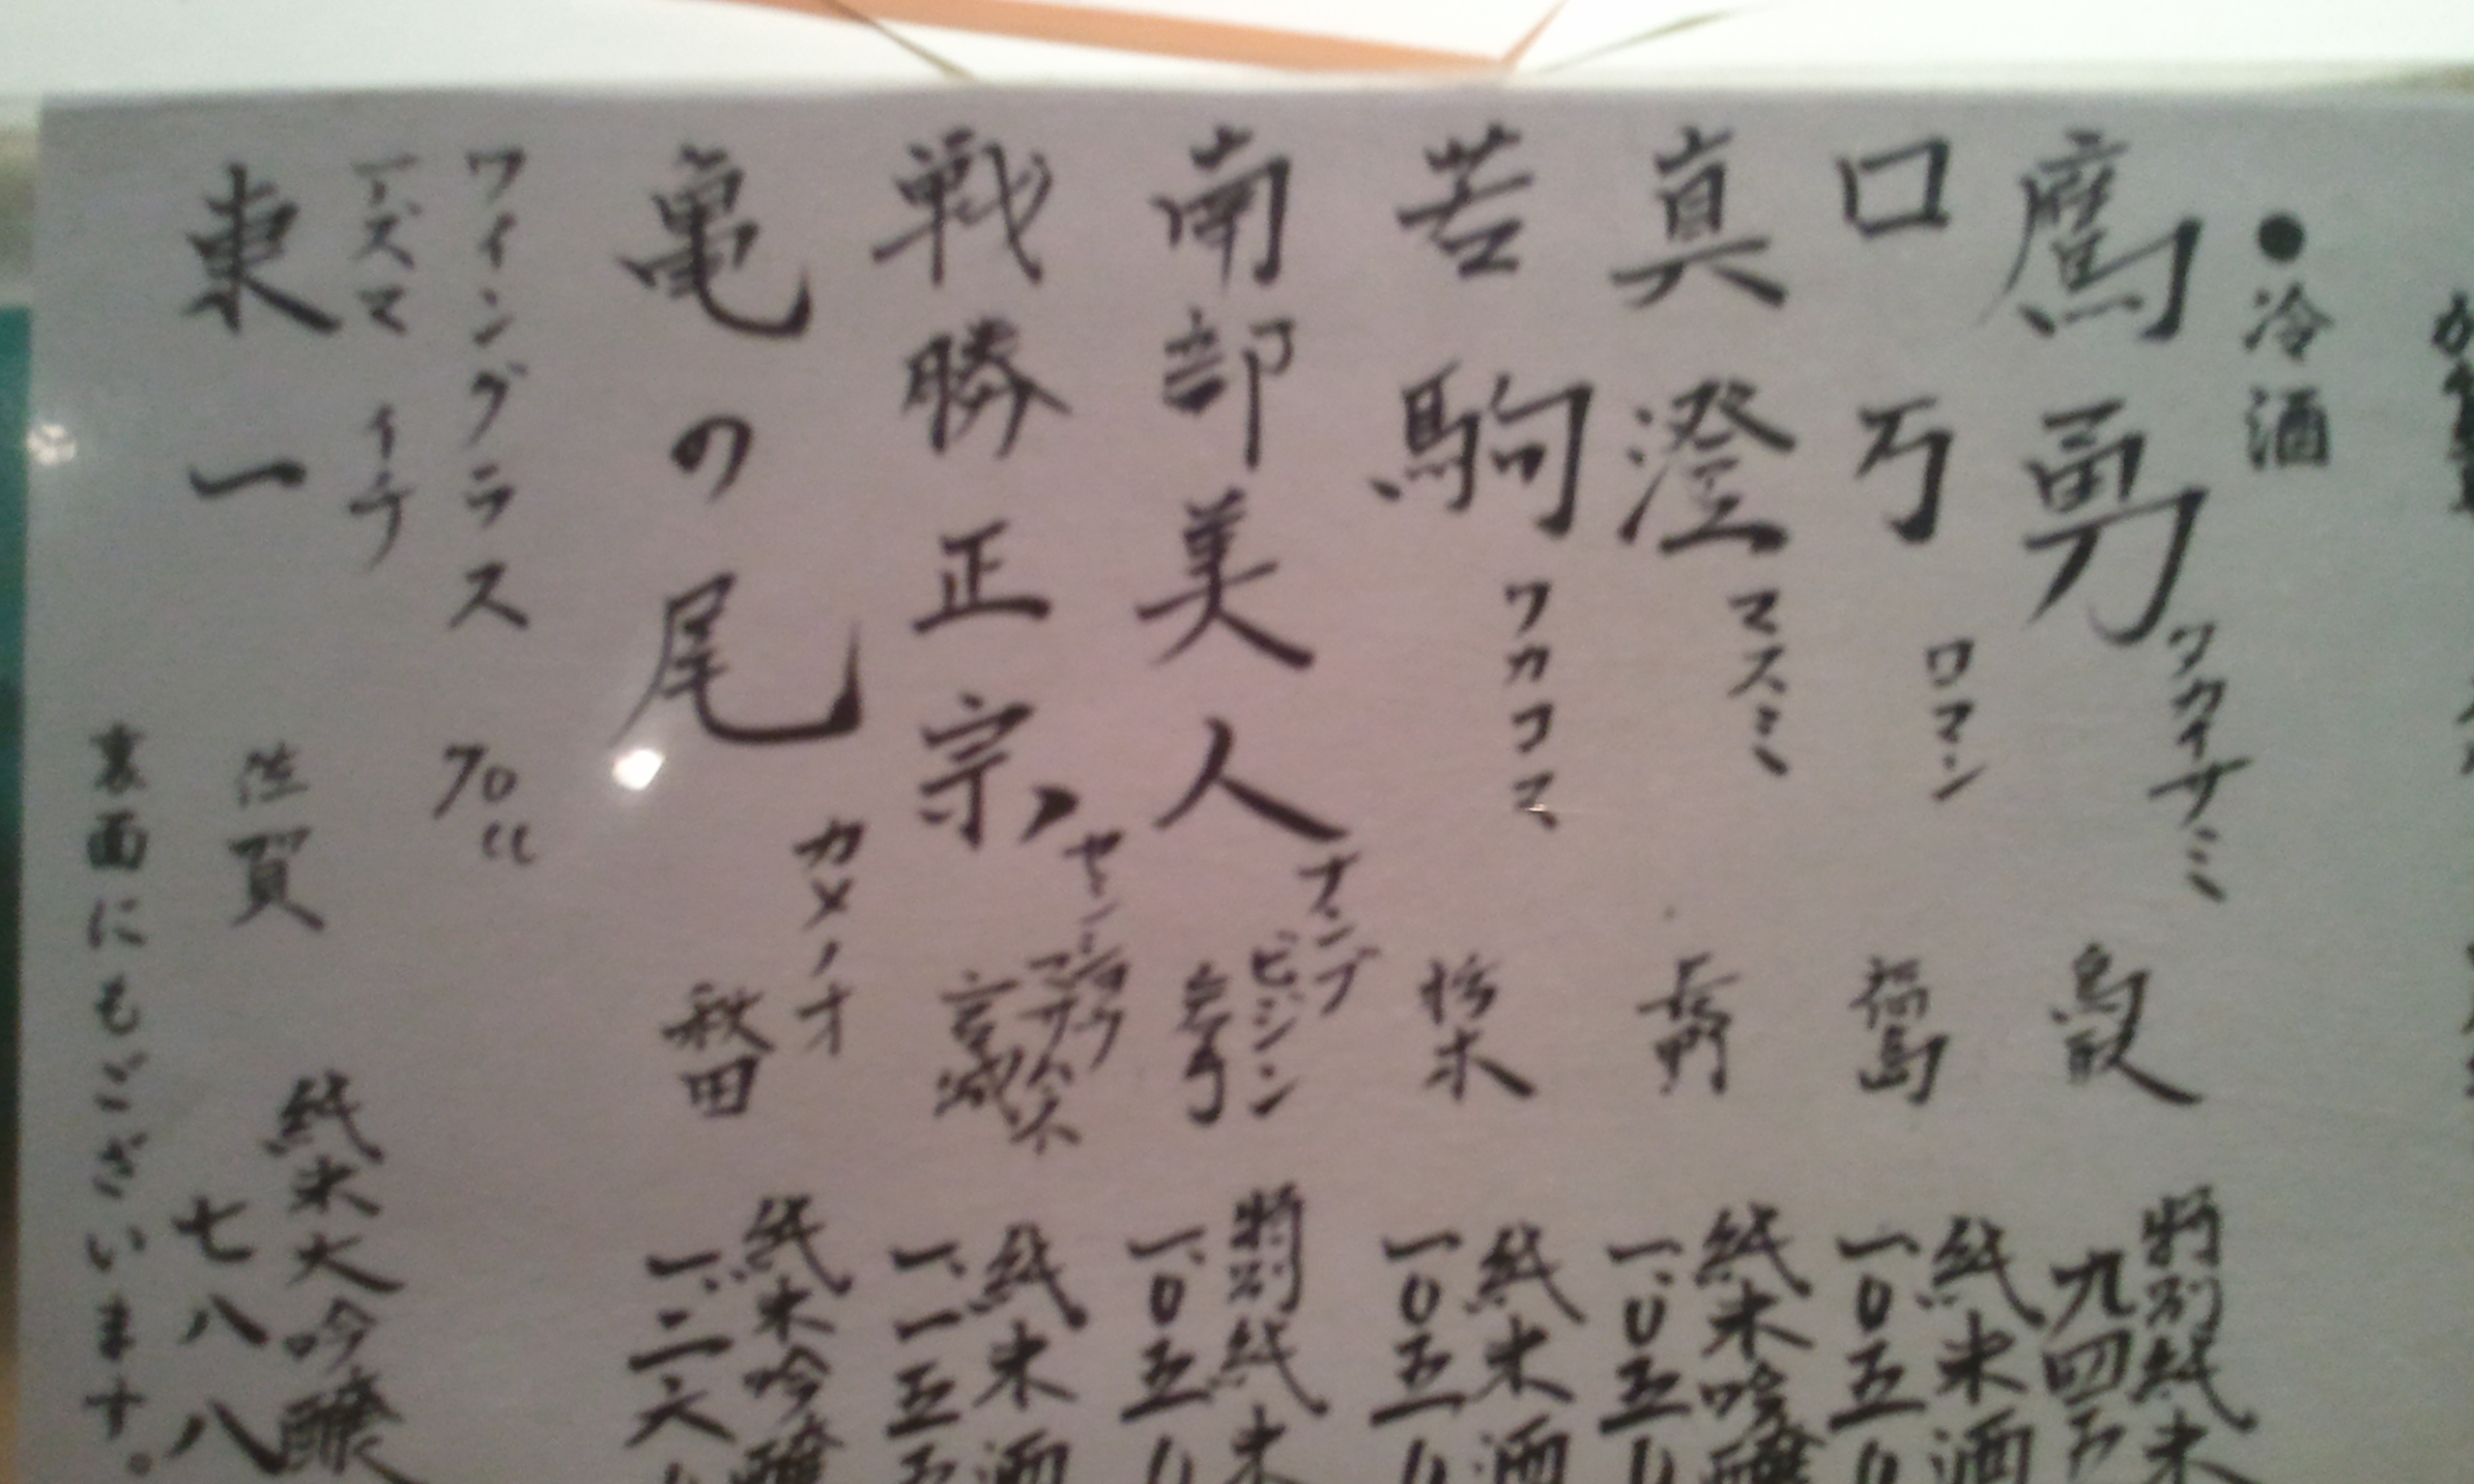 ●冷酒
鷹勇 ワカイサミ 鳥取 特別純米 九四五
ロ万 ロマン 福島 純米酒 一、〇五〇
真澄 マスミ 長野 純米吟醸 一、〇五〇
若駒 ワカコマ 栃木 純米酒 一、〇五〇
南部美人 ナンブビジン 岩手 特別純米 一、〇五〇
戦勝正宗 センショウマサムネ 宮城 純米酒 一、一五五
亀の尾 カメノオ 秋田 純米吟醸 一、二六〇
ワイングラス 70cc
東一 アズマイチ 佐賀 純米大吟醸 七八八
裏面にもございます。